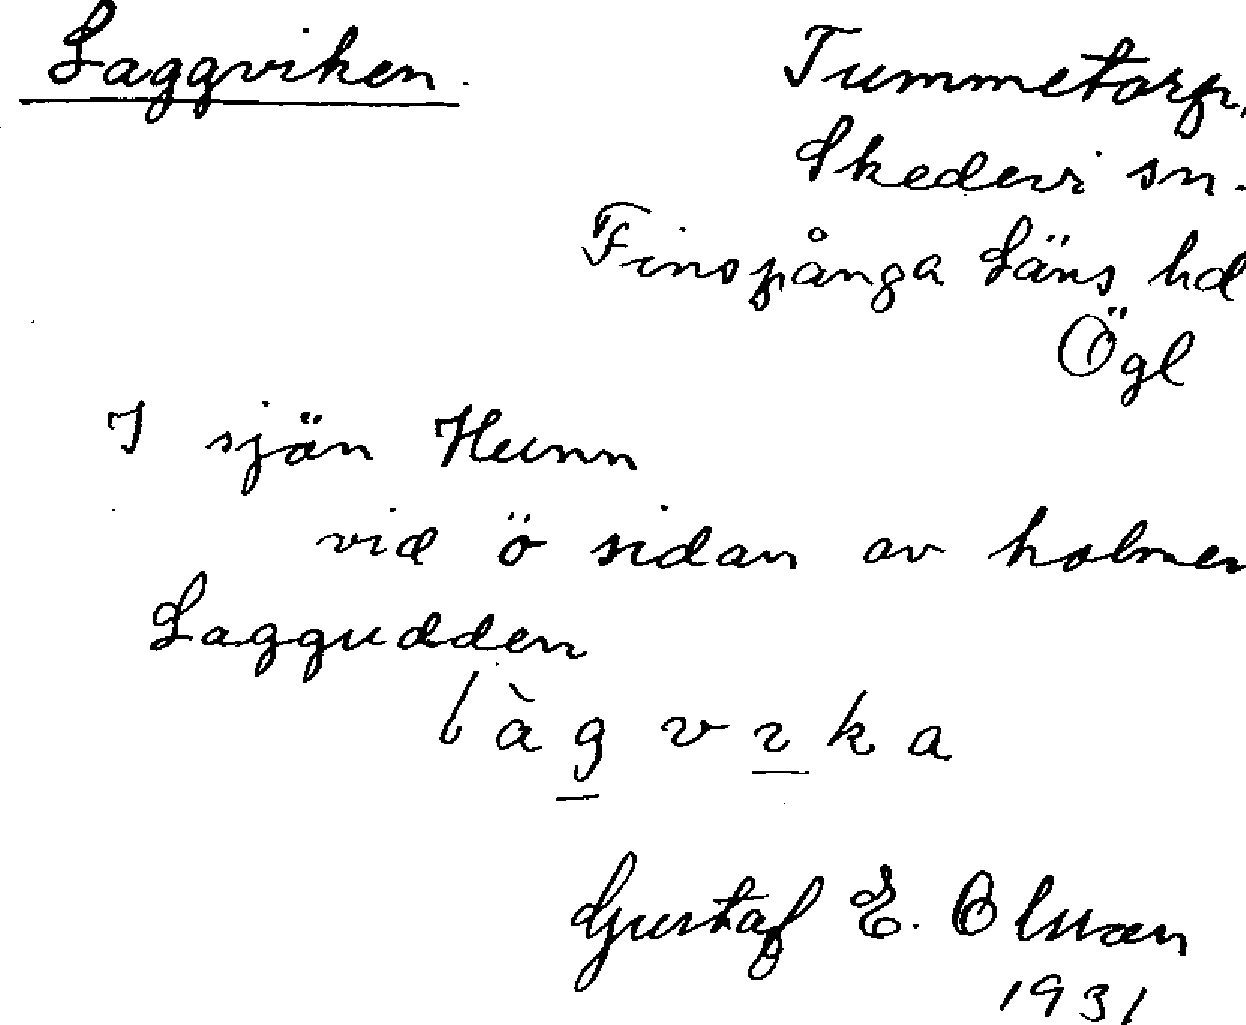 Laggviken.
Tummetorp,
Skedevi sn.
Finspånga Läns hd
Ögl
I sjön Hunn
vid ö sidan av holmen
Laggudden
làgvıka
Gustaf E. Olsson
1931